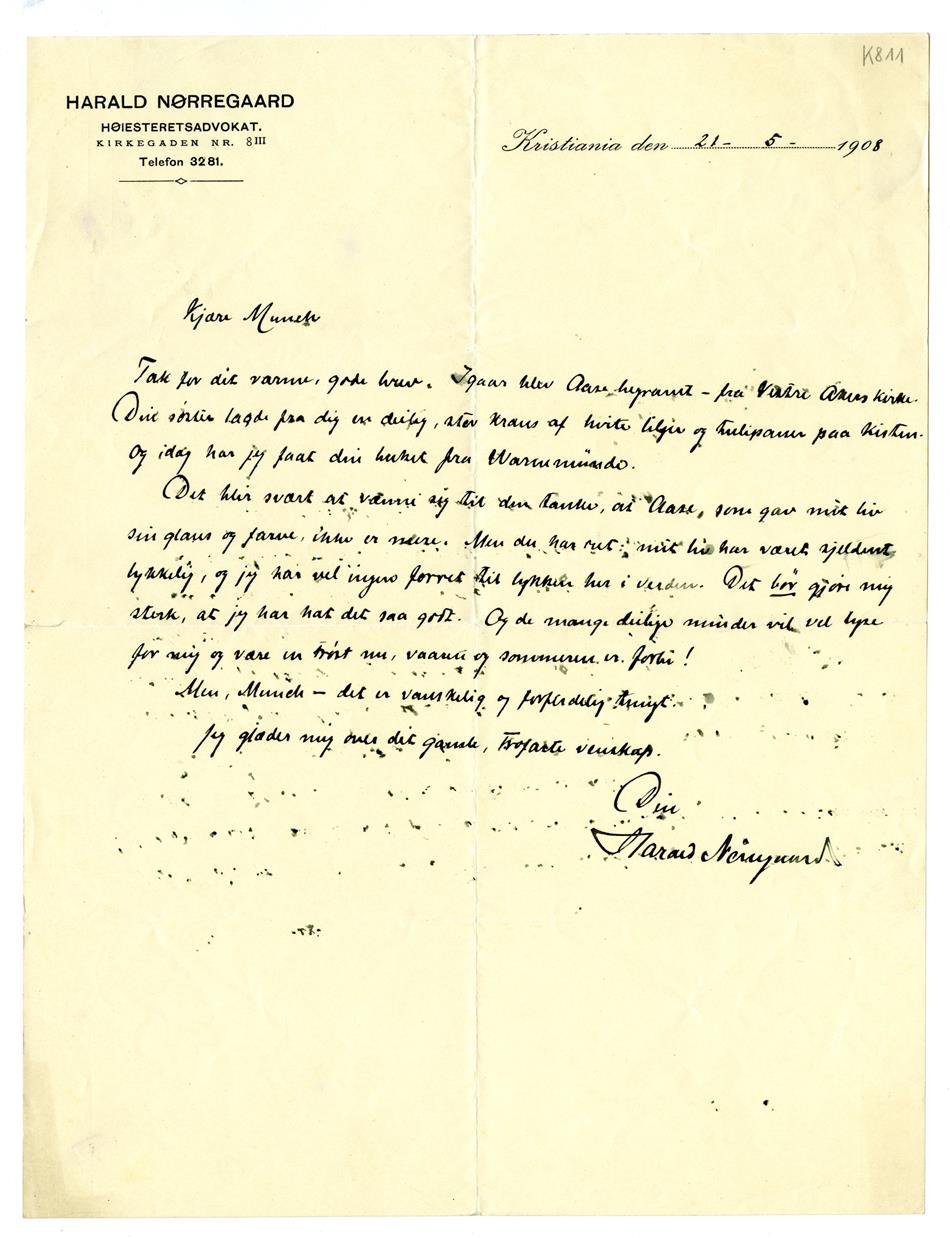 K811
HARALD NØRREGAARD
HØIESTERETSADVOKAT.
KIRKEGADEN NR. 8III
Telefon 3281.
Kristiania den 21- 5- 1908
Kjære Munch
Tak for dit varme, gode brev. Igaar blev Aase begravet – fra Vestre Akers kirke.
Din søster lagde fra dig en deilig, stor krans af hvite liljer og tulipaner paa kisten.
Og idag har jeg faat din buket fra Warnemünde.
Det blir svært at vænne sig til den tanke, at Aase, som gav mit liv
sin glans og farve, ikke er mere. Men du har ret: mit liv har været sjeldent
lykkelig, og jeg har vel ingen forret til lykken her i verden. Det bør gjøre mig
sterk, at jeg har hat det saa godt. Og de mange deilige minder vil vel lyse
for mig og være en trøst nu, vaaren og sommeren er forbi!
Men, Munch – det er vanskelig og forferdelig tungt.
Jeg glæder mig over dit gamle, trofaste venskap.
Din
Harald Nørregaard